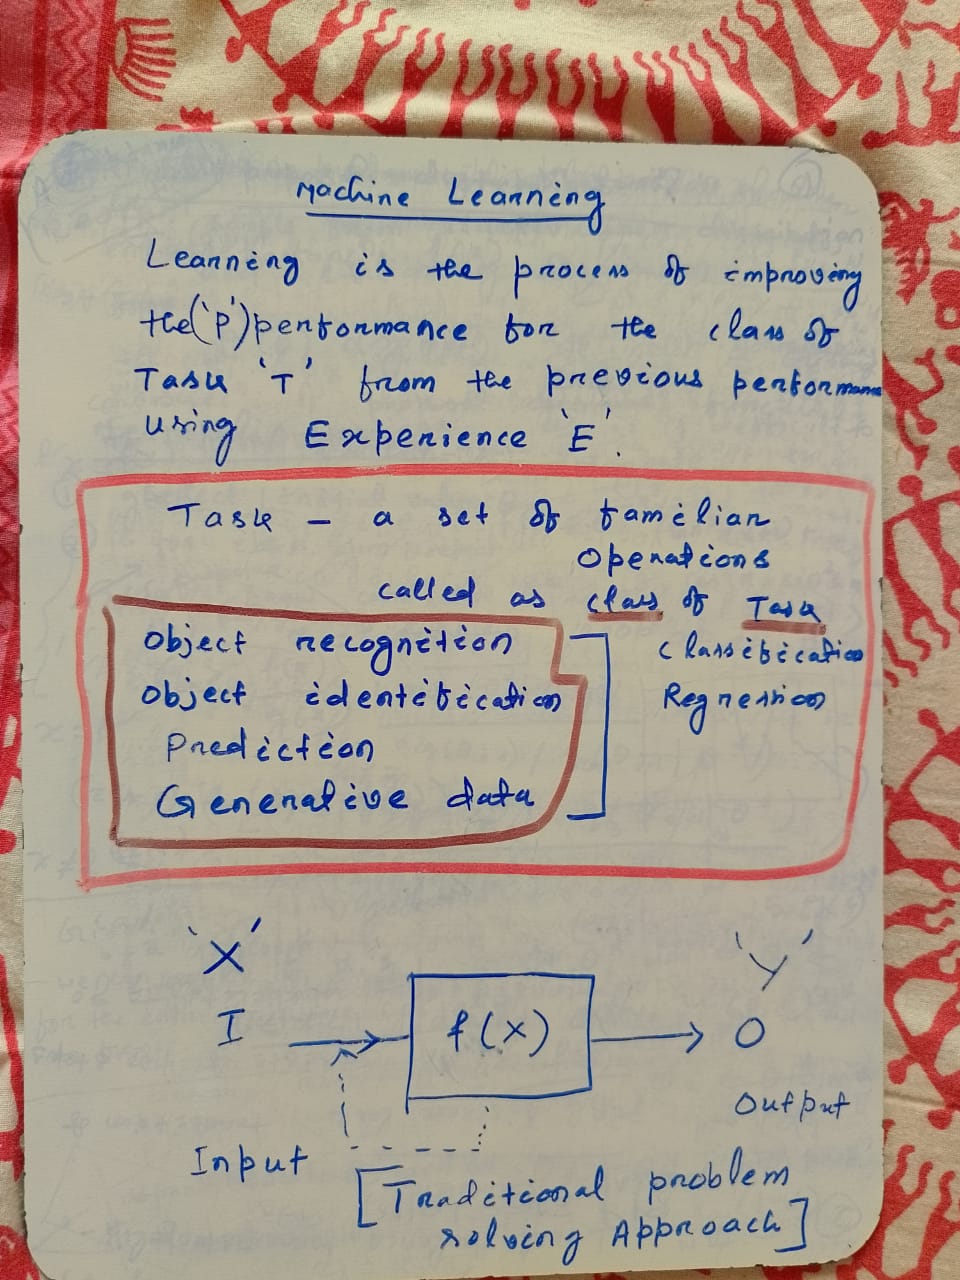 Machine Learning
Learning is the process of improving
the('P')performance for the class of
Task 'T' from the previous performance
using Experience 'E'.
Task - a set of familiar
operations
called as class of Task
Object recognition
classification
Object identification
Regression
Prediction
Generative data
'X'
'Y'
I
f(x)
O
Output
Input
[Traditional problem
solving Approach]